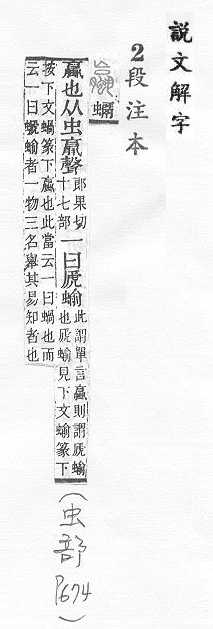 說文解字
2段注本
蠃 蝸
蠃也从虫𣎆聲郎果切十七部一曰虒蝓此謂單言蠃則謂虒蝓也虒蝓見下文蝓篆下
按下文蝸篆下蠃也此當云一曰蝸也而
云一曰虒蝓者一物三名舉其易知者也
(虫部 P674)